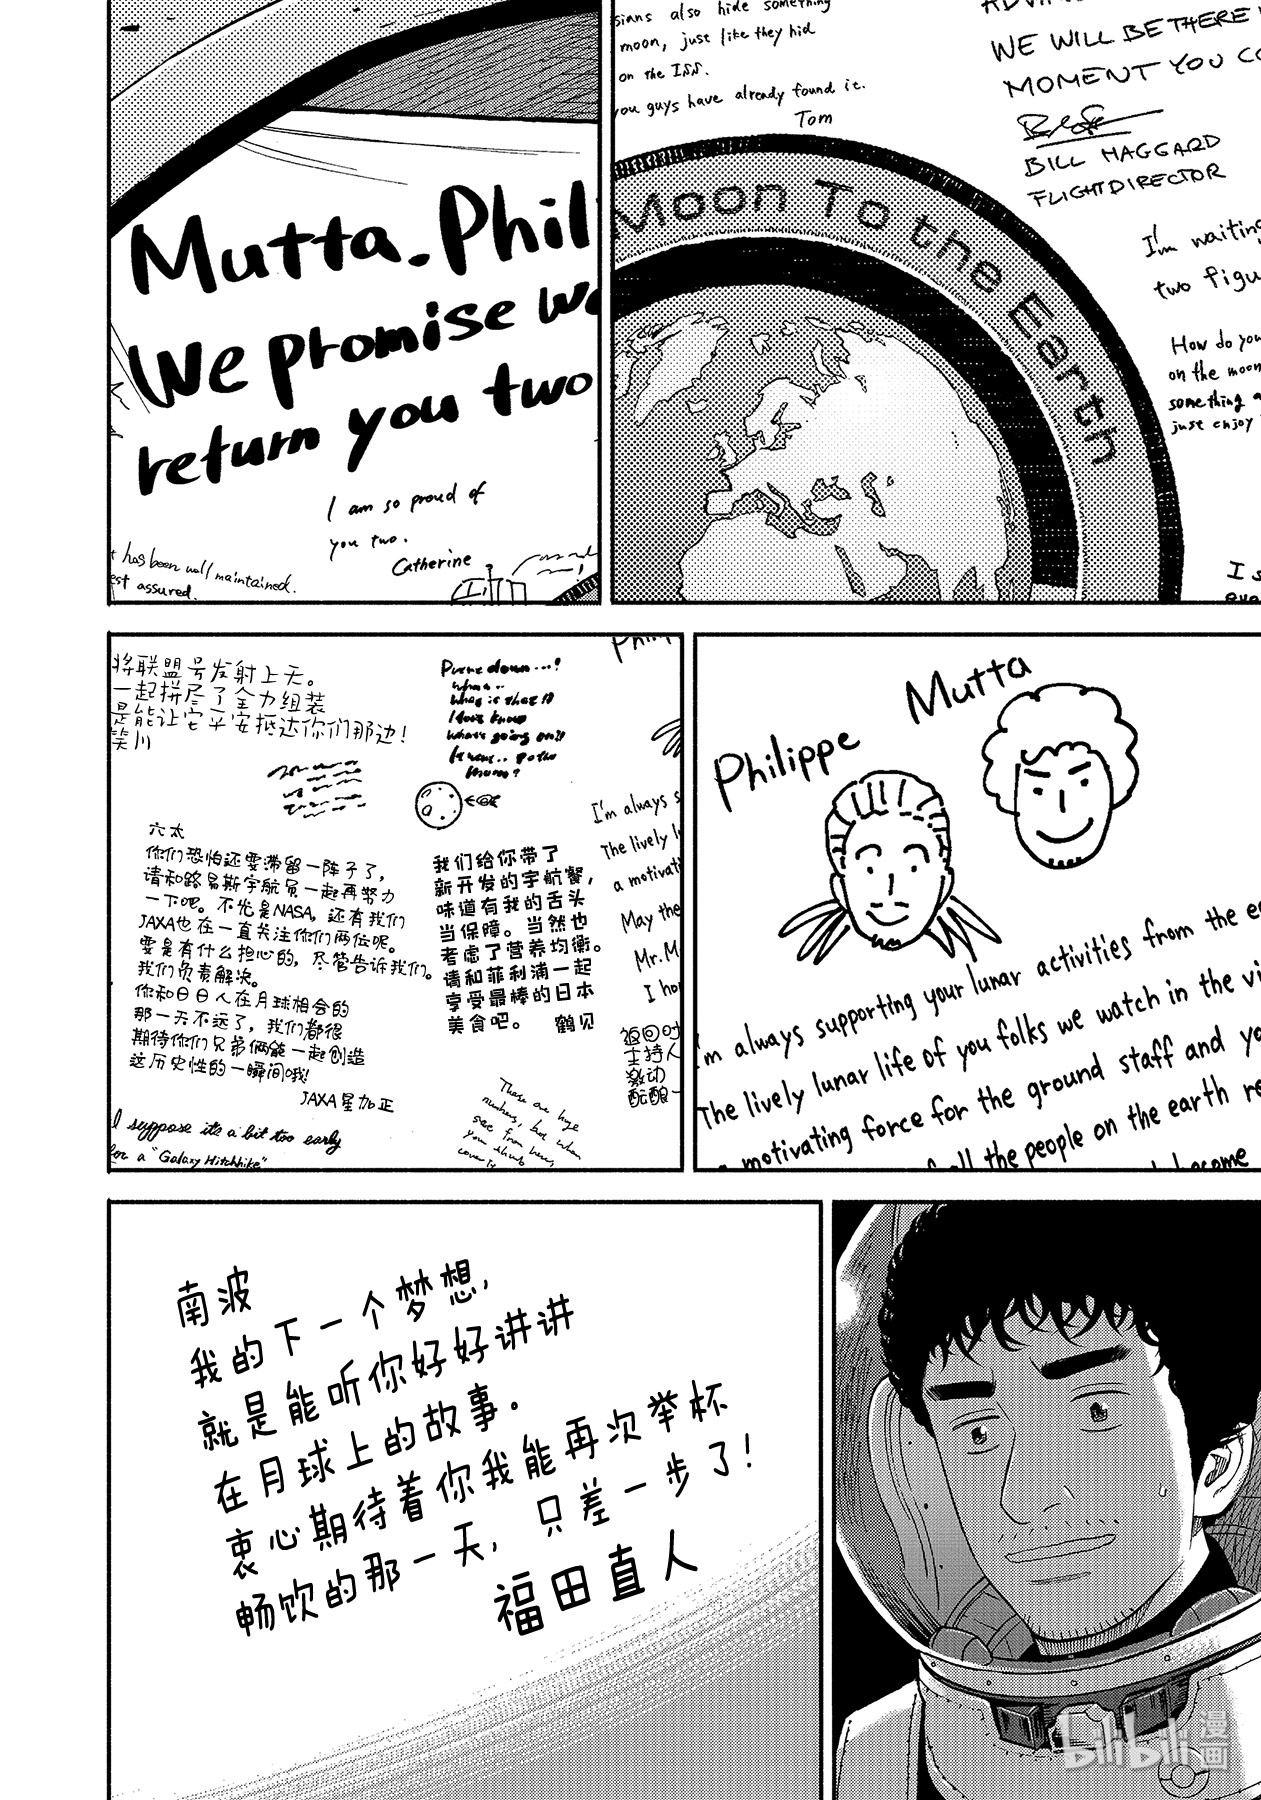 Mutta. Phil
We promise we
return you two
I am so proud of
you two.
Catherine
has been well maintained.
est assured.
sians also hide something
moon, just like they hid
on the ISS.
you guys have already found it.
Tom
WE WILL BE THERE
MOMENT YOU CO
BILL HAGGARD
FLIGHT DIRECTOR
Moon To the Earth
I'm waiting
two figu
How do you
on the moon
something a
just enjoy
I s
eve
将联盟号发射上天。
一起拼尽了全力组装
是能让它平安抵达你们那边！
笑川
what's going on?!
六太
你们恐怕还要滞留一阵子了，
请和路易斯宇航员一起再努力
一下吧。不光是NASA，还有我们
JAXA也在一直关注你们两位呢。
要是有什么担心的，尽管告诉我们。
我们负责解决。
你和日日人在月球相会的
那一天不远了，我们都很
期待你们兄弟俩能一起创造
这历史性的一瞬间哦！
JAXA星加正
I suppose it's a bit too early
for a "Galaxy Hitchhike"
我们给你带了
新开发的宇航餐，
味道有我的舌头
当保障。当然也
考虑了营养均衡。
请和菲利浦一起
享受最棒的日本
美食吧。 鹤见
There are huge
numbers, but when
see from here,
your thumb
covers it
I'm always s
The lively lu
a motivati
May the
Mr. M
I ho
返回时
主持人
激动
酝酿
Philippe
Mutta
I'm always supporting your lunar activities from the ea
The lively lunar life of you folks we watch in the vi
a motivating force for the ground staff and yo
all the people on the earth re
become
南波
我的下一个梦想，
就是能听你好好讲讲
在月球上的故事。
衷心期待着你我能再次举杯
畅饮的那一天，只差一步了！
福田直人
bilibili 漫画